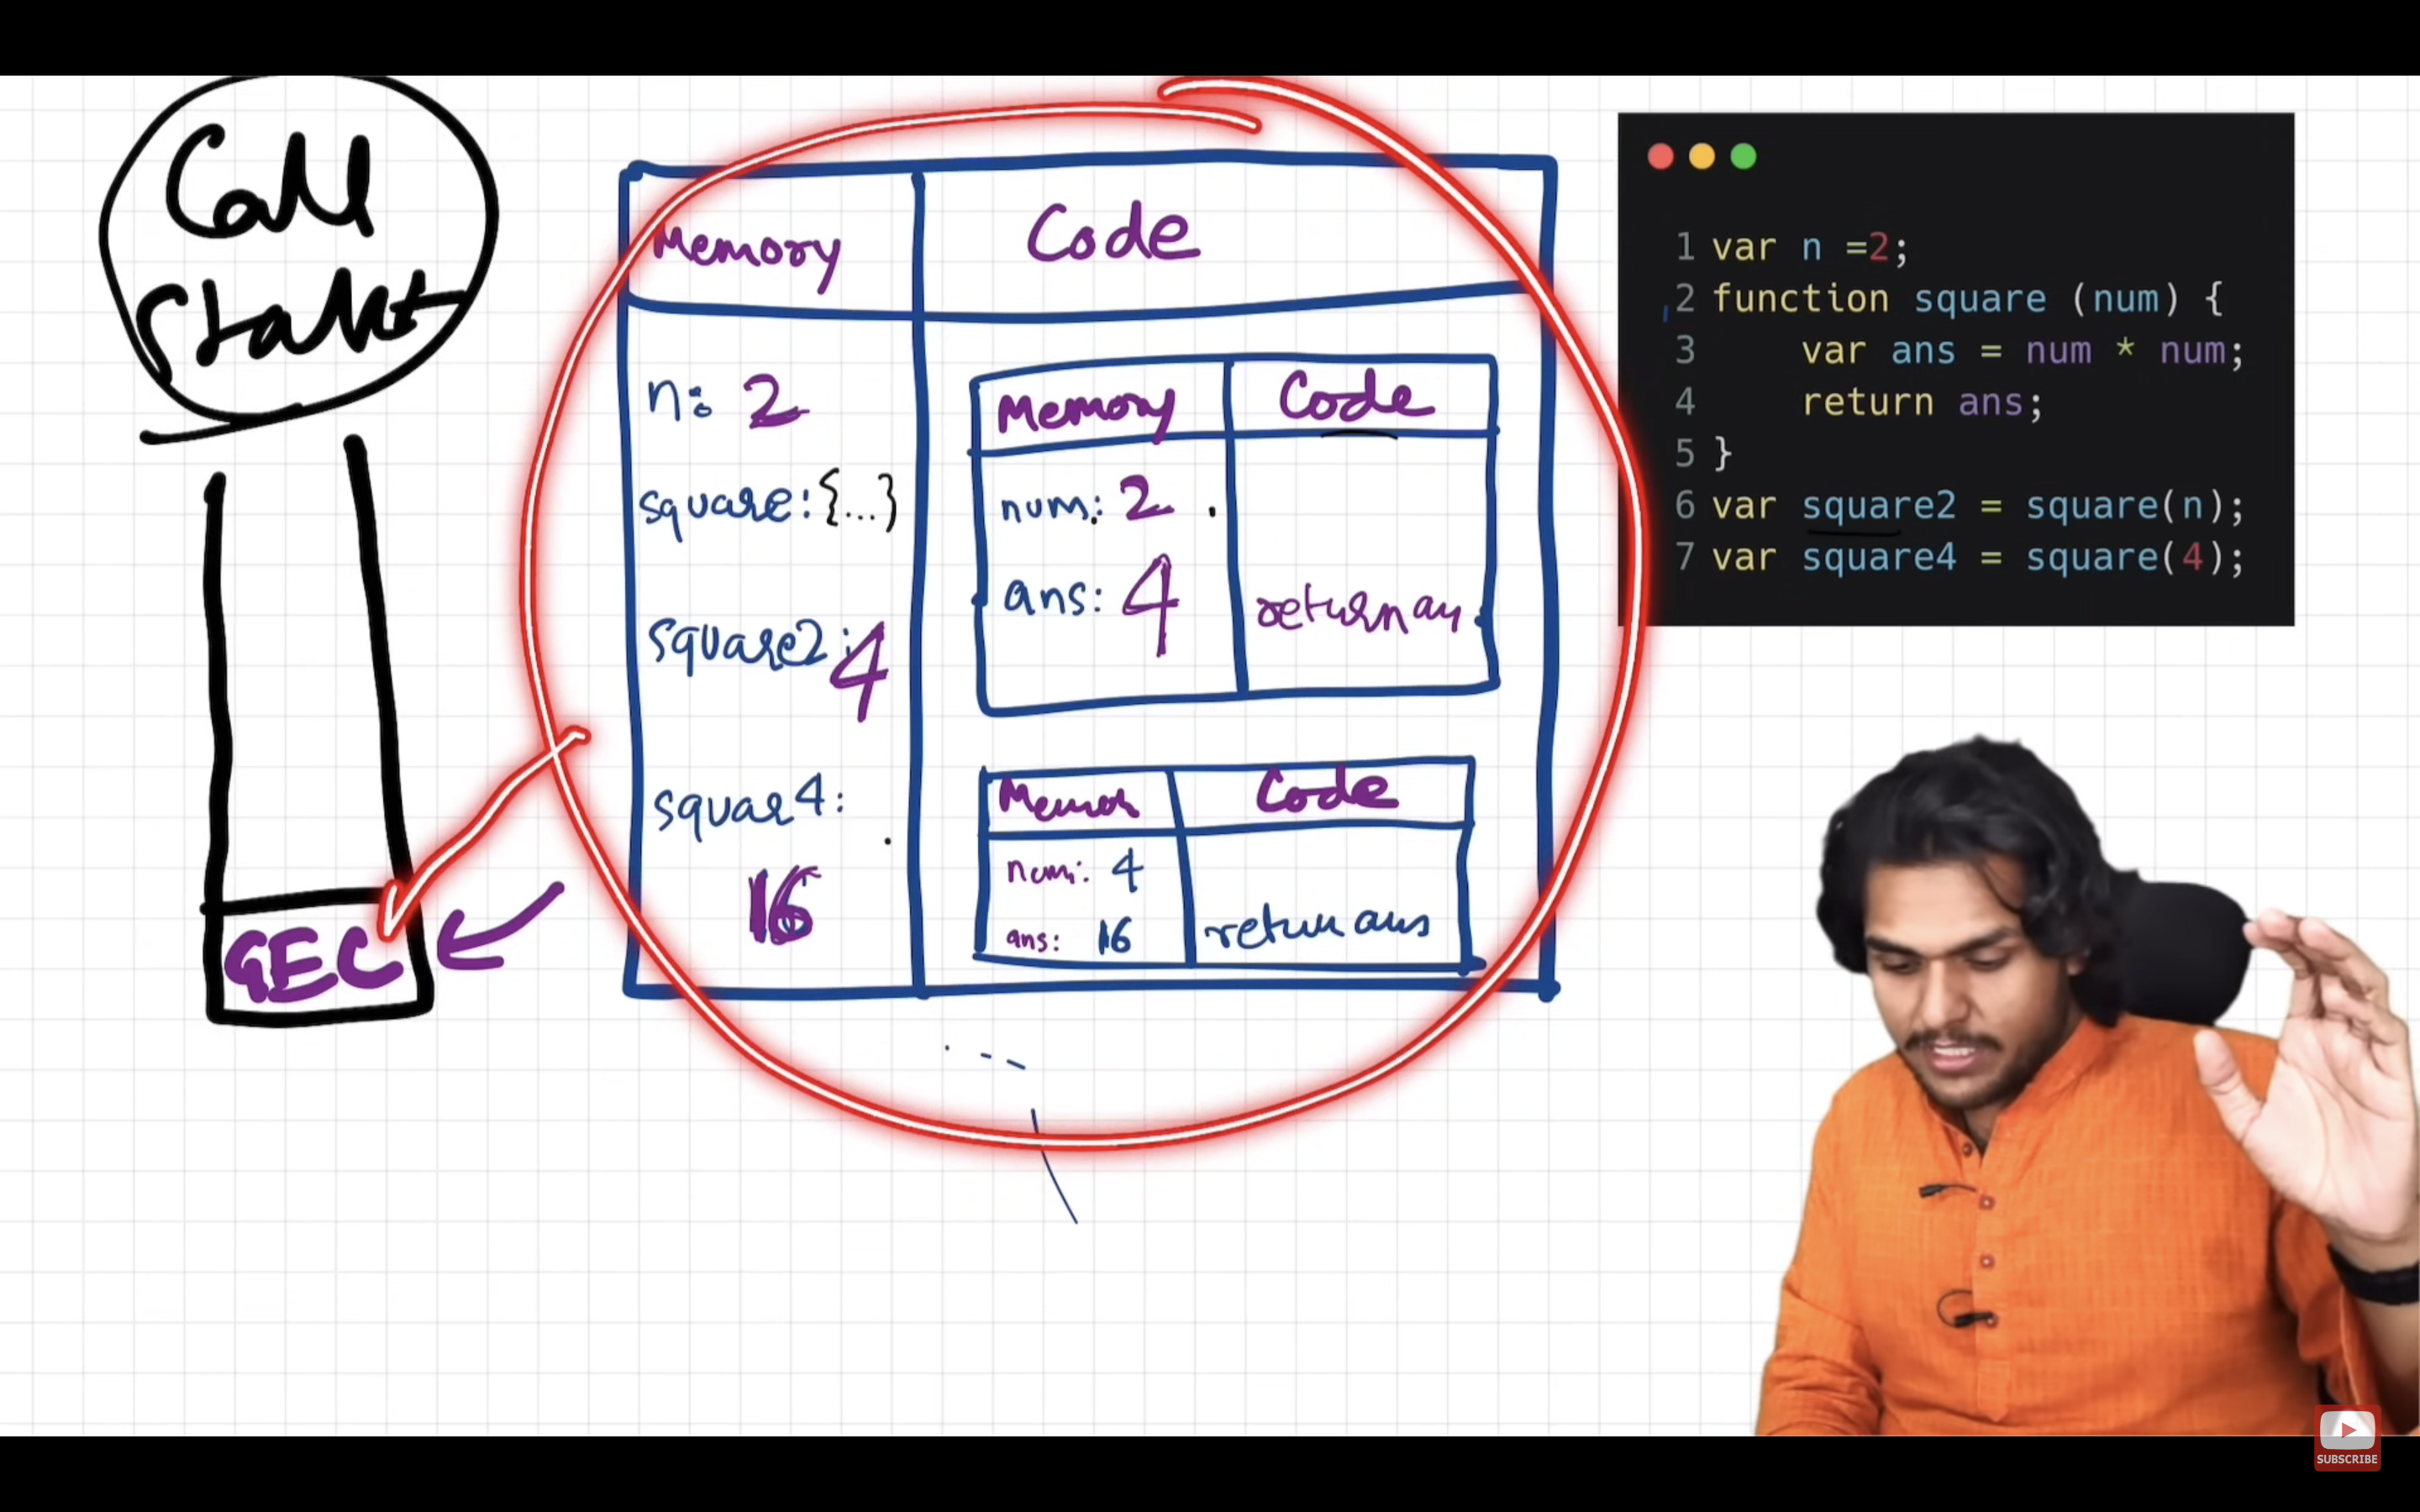 Call
Stack
GEC
Memory
Code
n: 2
square: {...}
square2: 4
squar4:
16
Memory
Code
num: 2
ans: 4
return an
Code
num: 4
ans: 16
return ans
1 var n =2;
2 function square (num) {
3 var ans = num * num;
4 return ans;
5 }
6 var square2 = square(n);
7 var square4 = square(4);
SUBSCRIBE